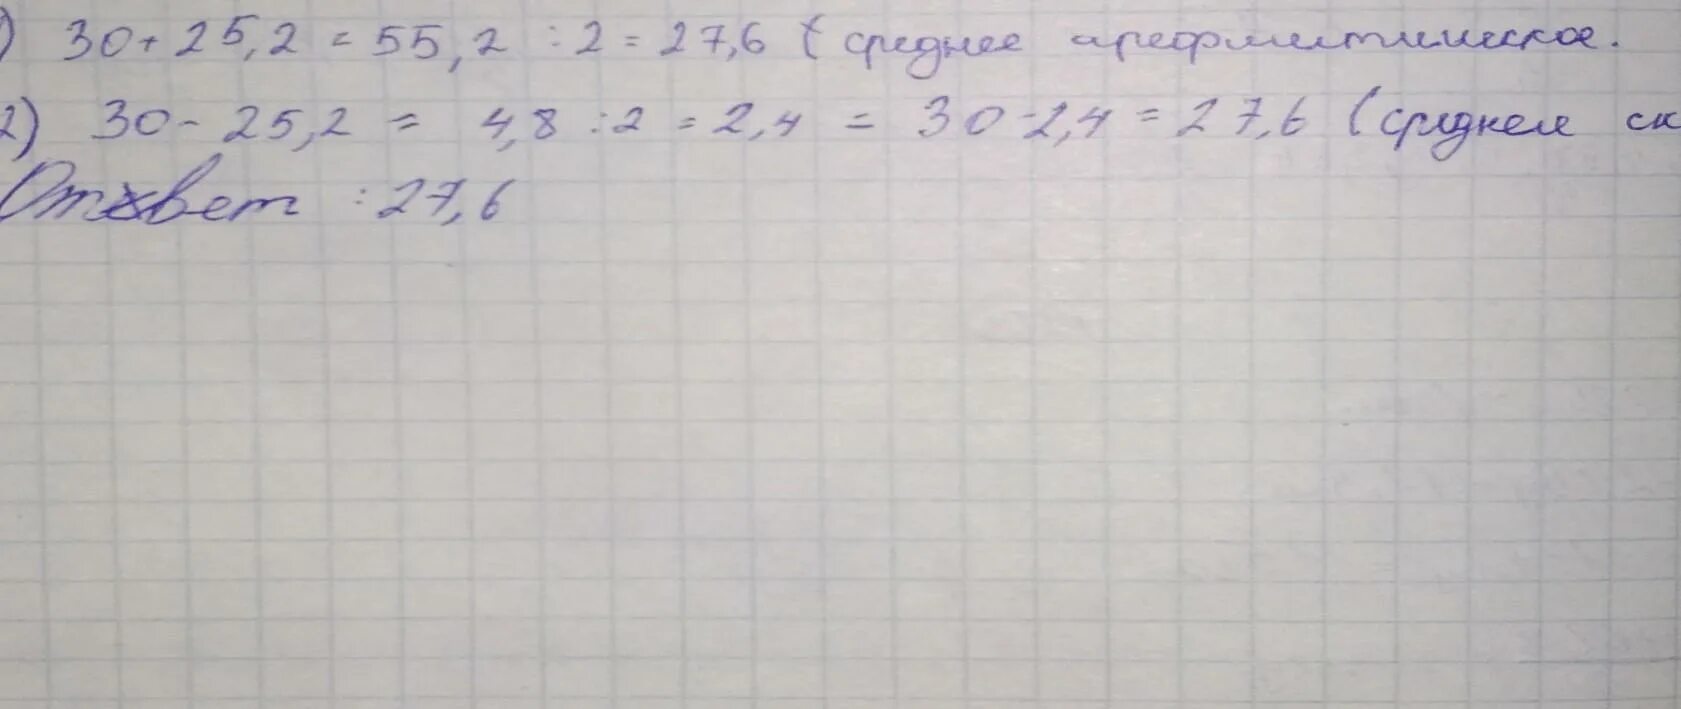 ) 30 + 25,2 = 55,2 : 2 = 27,6 ( среднее арефмитическое.
2) 30 - 25,2 = 4,8 : 2 = 2,4 = 30 - 2,4 = 27,6 ( среднем ск
Ответ : 27,6